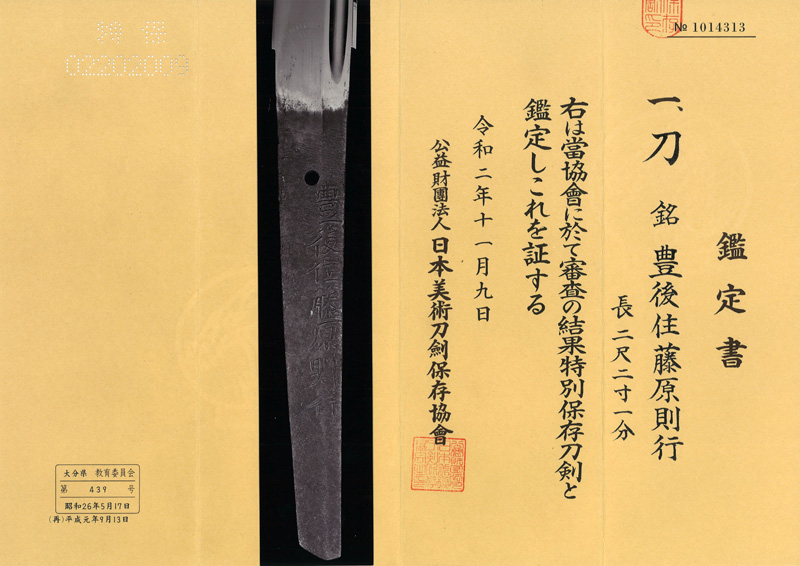 № 1014313
鑑定書
一、刀 銘 豊後住藤原則行
長 二尺二寸一分
右は當協會に於て審査の結果特別保存刀剣と
鑑定しこれを証する
令和二年十一月九日
公益財團法人日本美術刀劍保存協會
豊後住藤原則行
特保
02202009
大分県 教育委員会
第 439 号
昭和26年5月17日
(再)平成元年9月13日